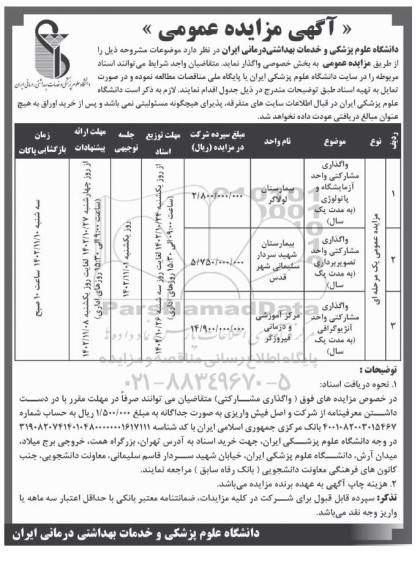 « آگهی مزایده عمومی »
دانشگاه علوم پزشکی و خدمات بهداشتی درمانی ایران
دانشگاه علوم پزشکی و خدمات بهداشتی‌درمانی ایران در نظر دارد موضوعات مشروحه ذیل را
از طریق مزایده عمومی به بخش خصوصی واگذار نماید. متقاضیان واجد شرایط می‌توانند اسناد
مربوطه را در سایت دانشگاه علوم پزشکی ایران یا پایگاه ملی مناقصات مطالعه نموده و در صورت
تمایل به تهیه اسناد طبق توضیحات مندرج در ذیل جدول اقدام نمایند. لازم به ذکر است دانشگاه
علوم پزشکی ایران در قبال اطلاعات سایت های متفرقه، پذیرای هیچگونه مسئولیتی نمی باشد و پس از خرید اوراق به هیچ
عنوان مبالغ دریافتی عودت داده نخواهد شد.
ردیف | نوع | موضوع | نام واحد | مبلغ سپرده شرکت در مزایده (ریال) | مهلت توزیع اسناد | جلسه توجیهی | مهلت ارائه پیشنهادات | زمان بازگشایی پاکات
مزایده عمومی یک مرحله ای
۱ | واگذاری مشارکتی واحد آزمایشگاه و پاتولوژی (به مدت یک سال) | بیمارستان لولاگر | ۲/۸۰۰/۰۰۰/۰۰۰
۲ | واگذاری مشارکتی واحد تصویربرداری (به مدت یک سال) | بیمارستان شهید سردار سلیمانی شهر قدس | ۵/۷۵۰/۰۰۰/۰۰۰
۳ | واگذاری مشارکتی واحد آنژیوگرافی (به مدت یک سال) | مرکز آموزشی و درمانی فیروزگر | ۱۴/۹۰۰/۰۰۰/۰۰۰
از روز یکشنبه ۱۴۰۲/۱۰/۲۴ لغایت روز سه شنبه ۱۴۰۲/۱۰/۲۶
(ساعت ۰۹:۰۰ الی ۱۵:۳۰ روزهای اداری)
روز یکشنبه ۱۴۰۲/۱۱/۰۱
از روز چهارشنبه ۱۴۰۲/۱۰/۲۷ لغایت روز یکشنبه ۱۴۰۲/۱۱/۰۸
(ساعت ۹:۰۰ الی ۱۵:۳۰ روزهای اداری)
سه شنبه ۱۴۰۲/۱۱/۱۰ ساعت ۱۰ صبح
ParsnamadData
پایگاه اطلاع رسانی مناقصه و مزایده
۰۲۱-۸۸۳۴۹۶۷۰-۵
توضیحات :
۱. نحوه دریافت اسناد:
در خصوص مزایده های فوق ( واگذاری مشارکتی) متقاضیان می توانند صرفاً در مهلت مقرر با در دست
داشتن معرفینامه از شرکت و اصل فیش واریزی به صورت جداگانه به مبلغ ۱/۵۰۰/۰۰۰ ریال به حساب شماره
۴۰۰۱۰۸۲۰۰۳۰۱۵۴۶۷ بانک مرکزی جمهوری اسلامی ایران با کد شناسه ۳۱۹۰۸۲۰۷۴۱۴۰۱۰۴۸۰۰۰۰۰۰۰۱۶۱۷۱۱۱
در وجه دانشگاه علوم پزشکی ایران، جهت خرید اسناد به آدرس تهران، بزرگراه همت، خروجی برج میلاد،
میدان آرش، دانشگاه علوم پزشکی ایران، خیابان شهید سردار قاسم سلیمانی، معاونت دانشجویی، جنب
کانون های فرهنگی معاونت دانشجویی ( بانک رفاه سابق ) مراجعه نمایند.
۲. هزینه چاپ آگهی به عهده برنده مزایده می‌باشد.
تذکر: سپرده قابل قبول برای شرکت در کلیه مزایدات، ضمانتنامه معتبر بانکی با حداقل اعتبار سه ماهه یا
واریز وجه نقد می‌باشد.
دانشگاه علوم پزشکی و خدمات بهداشتی درمانی ایران